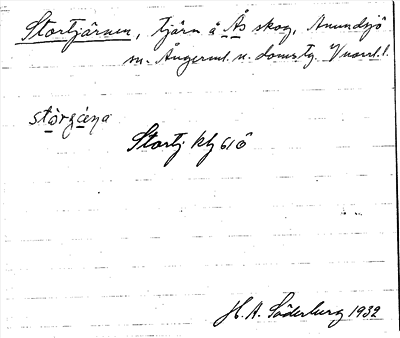 Stortjärnen, tjärn å Ås skog, Anundsjö
sn. Ångerml. n. domstg. V norrl. l.
stòrʒæ̀ɳa
Stortj. kb 61ö
H. A. Söderberg 1932